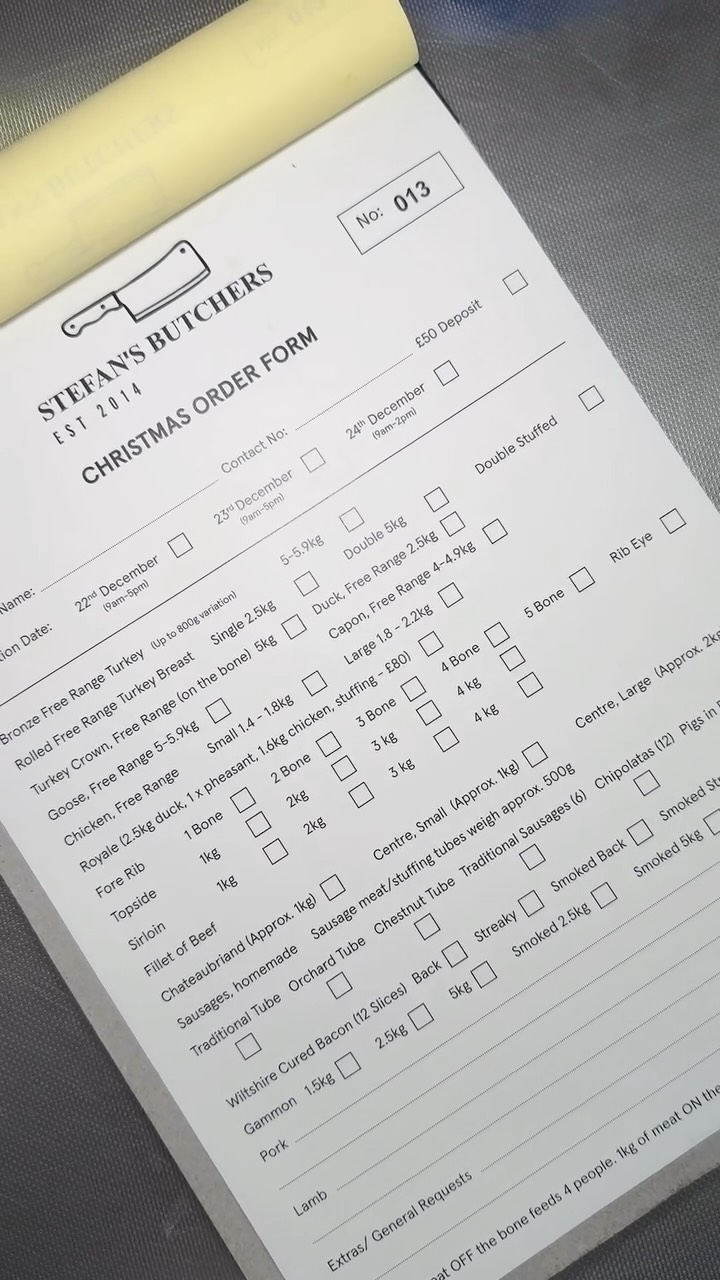 No: 013
STEFAN'S BUTCHERS
EST 2014
CHRISTMAS ORDER FORM
Name: Contact No: £50 Deposit
ion Date: 22nd December (9am-5pm) 23rd December (9am-5pm) 24th December (9am-2pm)
Bronze Free Range Turkey (Up to 800g variation) 5-5.9kg
Rolled Free Range Turkey Breast Single 2.5kg Double 5kg Double Stuffed
Turkey Crown, Free Range (on the bone) 5kg Duck, Free Range 2.5kg
Goose, Free Range 5-5.9kg Capon, Free Range 4-4.9kg
Chicken, Free Range Small 1.4 - 1.8kg Large 1.8 - 2.2kg
Royale (2.5kg duck, 1 x pheasant, 1.6kg chicken, stuffing - £80)
Fore Rib 1 Bone 2 Bone 3 Bone 4 Bone 5 Bone Rib Eye
Topside 1kg 2kg 3 kg 4 kg
Sirloin 1kg 2kg 3 kg 4 kg
Fillet of Beef
Chateaubriand (Approx. 1kg) Centre, Small (Approx. 1kg) Centre, Large (Approx. 2kg
Sausages, homemade Sausage meat/stuffing tubes weigh approx. 500g
Traditional Tube Orchard Tube Chestnut Tube Traditional Sausages (6) Chipolatas (12) Pigs in
Wiltshire Cured Bacon (12 Slices) Back Streaky Smoked Back Smoked
Gammon 1.5kg 2.5kg 5kg Smoked 2.5kg Smoked 5kg
Pork
Lamb
Extras/ General Requests
OFF the bone feeds 4 people. 1kg of meat ON the